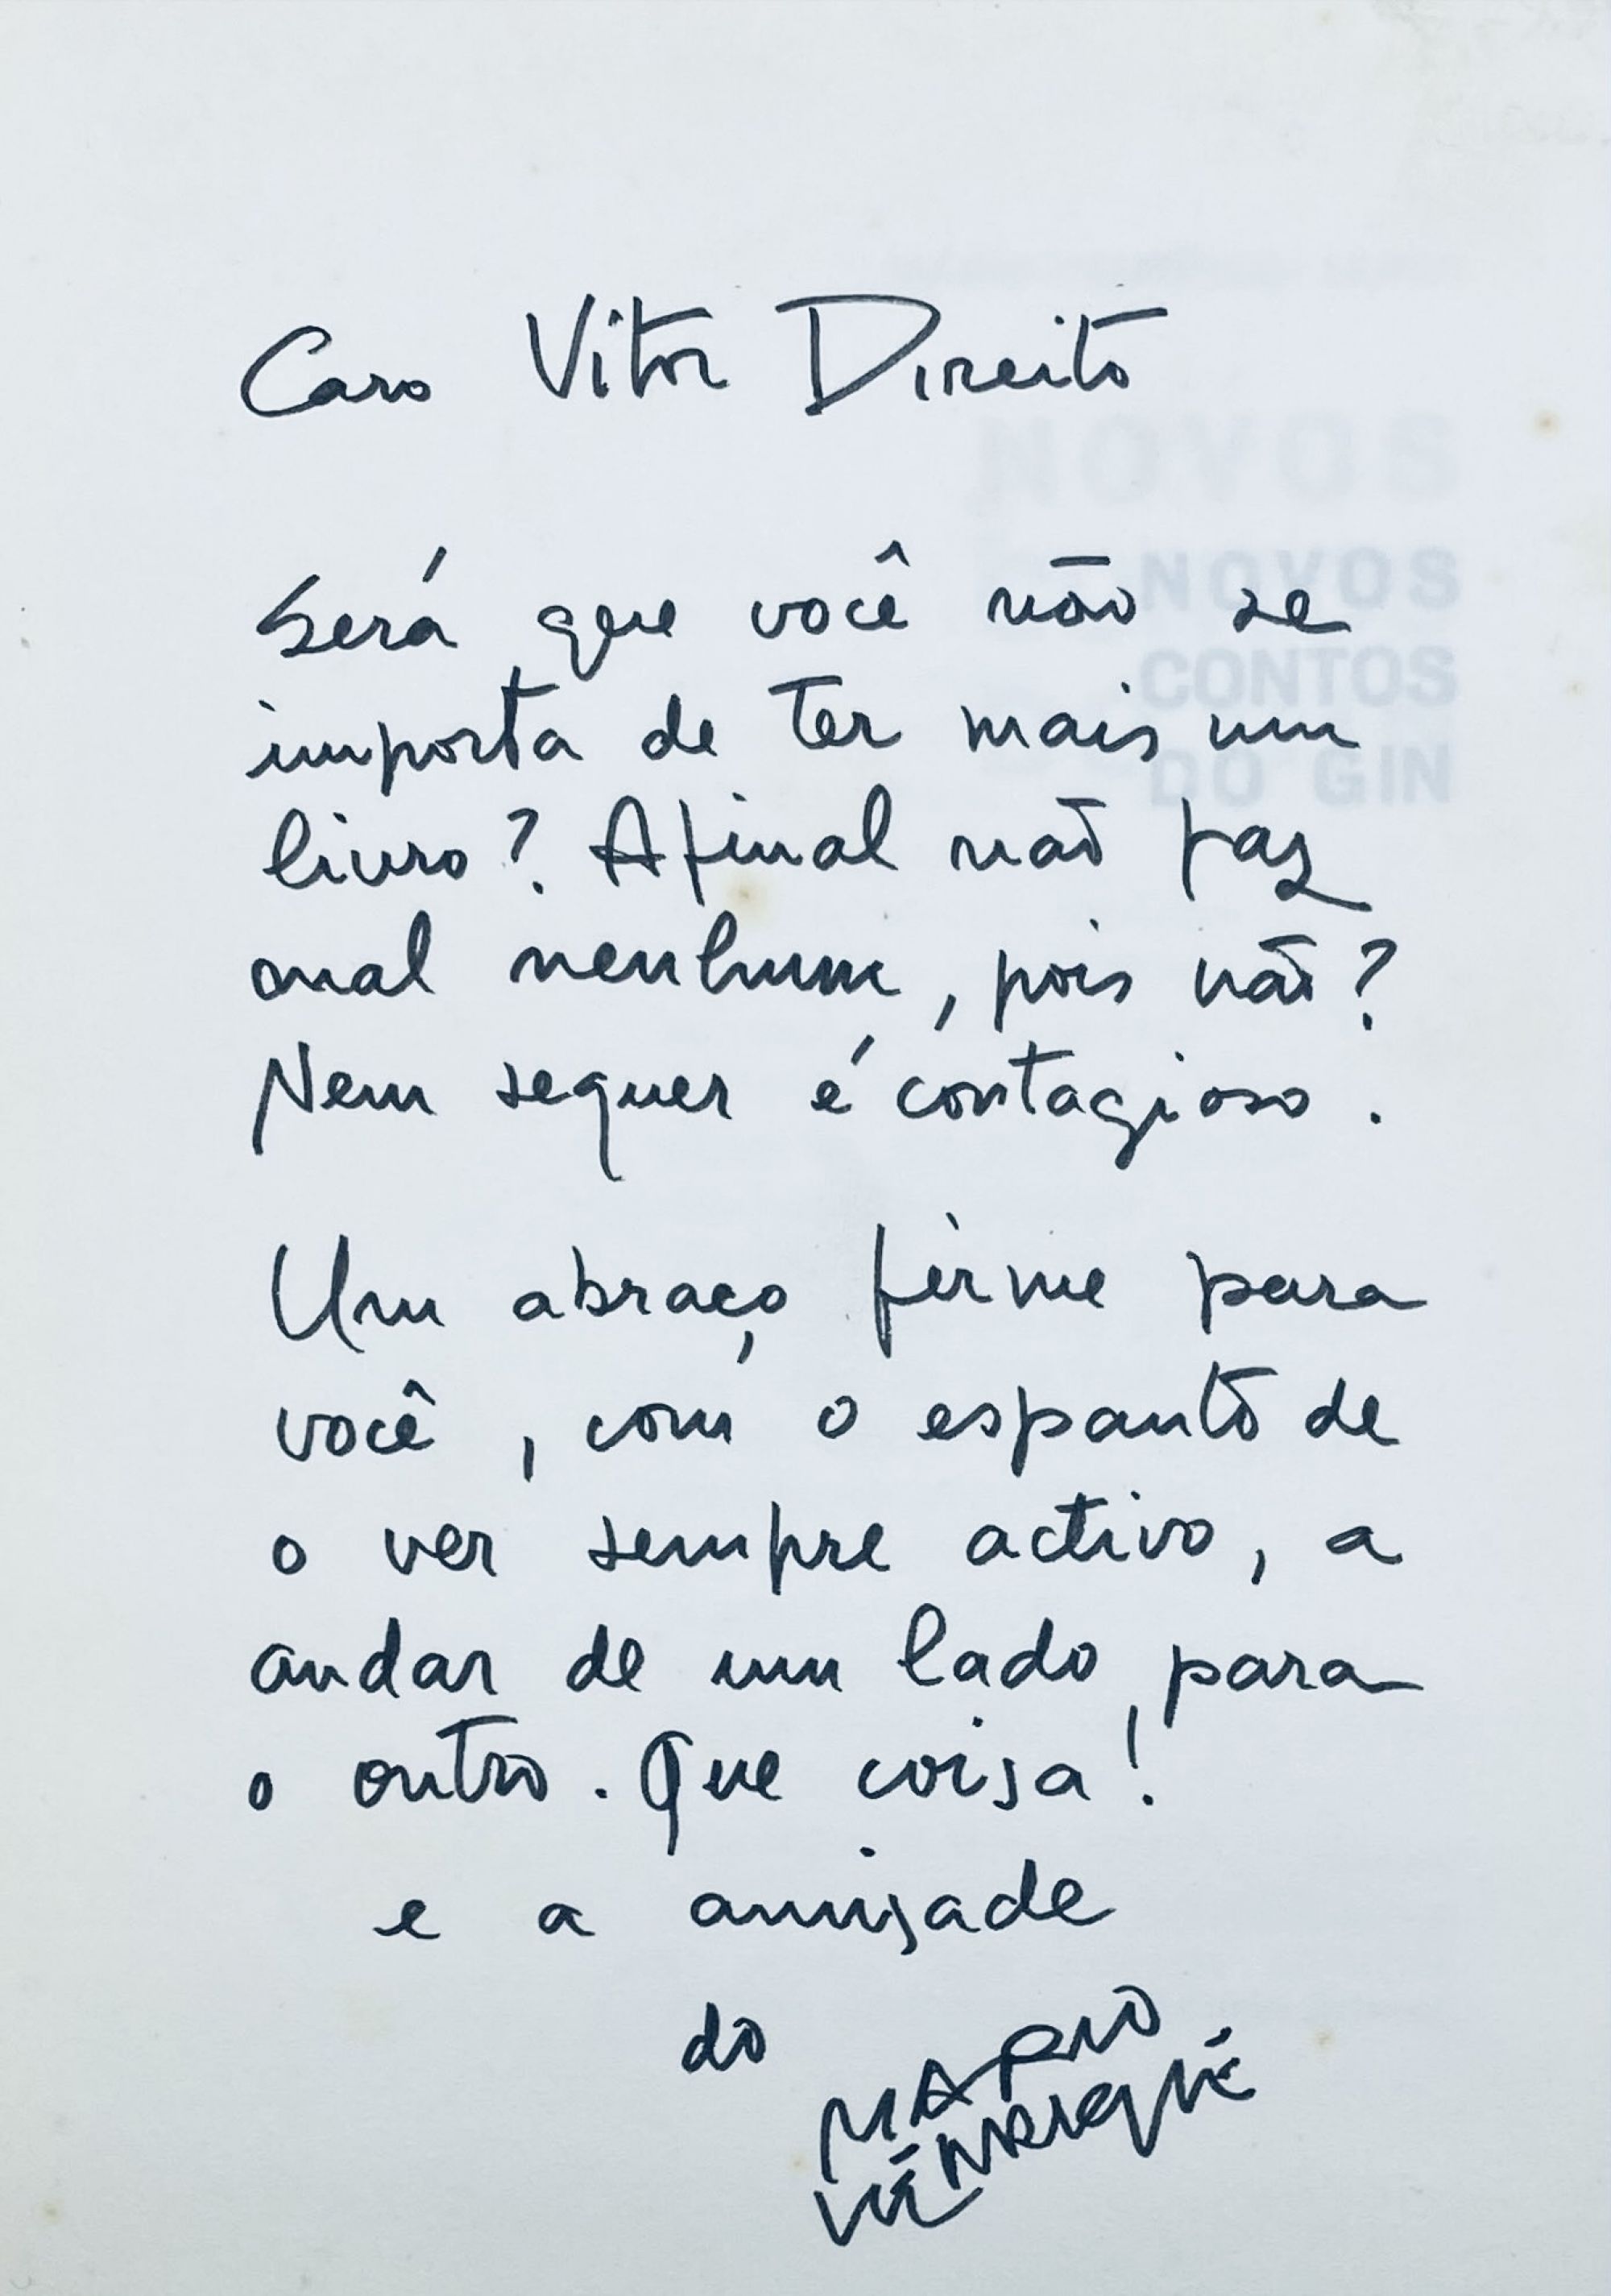 Caro Vitor Direito
NOVOS
Será que você não se
NOVOS
importa de ter mais um
CONTOS
livro? Afinal não faz
DO GIN
mal nenhum, pois não?
Nem sequer é contagioso.
Um abraço firme para
você, com o espanto de
o ver sempre activo, a
andar de um lado para
o outro. Que coisa!
e a amizade
do MARIO
HENRIQUE